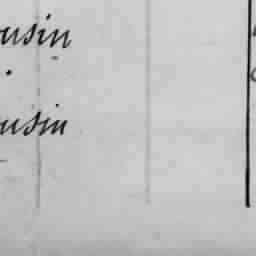 usin
usin